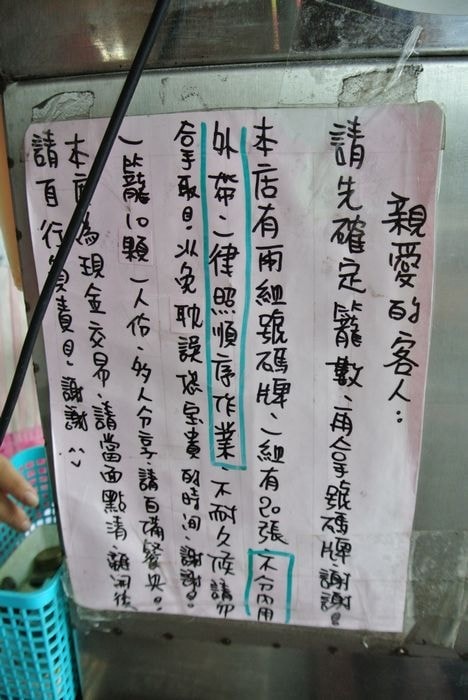 親愛的客人：
請先確定籠數、再拿號碼牌、謝謝！
本店有兩組號碼牌、一組有20張 不分內用
外帶、一律照順序作業 不耐久候請勿
拿取、以免耽誤您寶貴的時間、謝謝！
一籠10顆 一人份、多人分享、請自備餐具！
本店為現金交易、請當面點清、離開後
請自行負責、謝謝 ^^